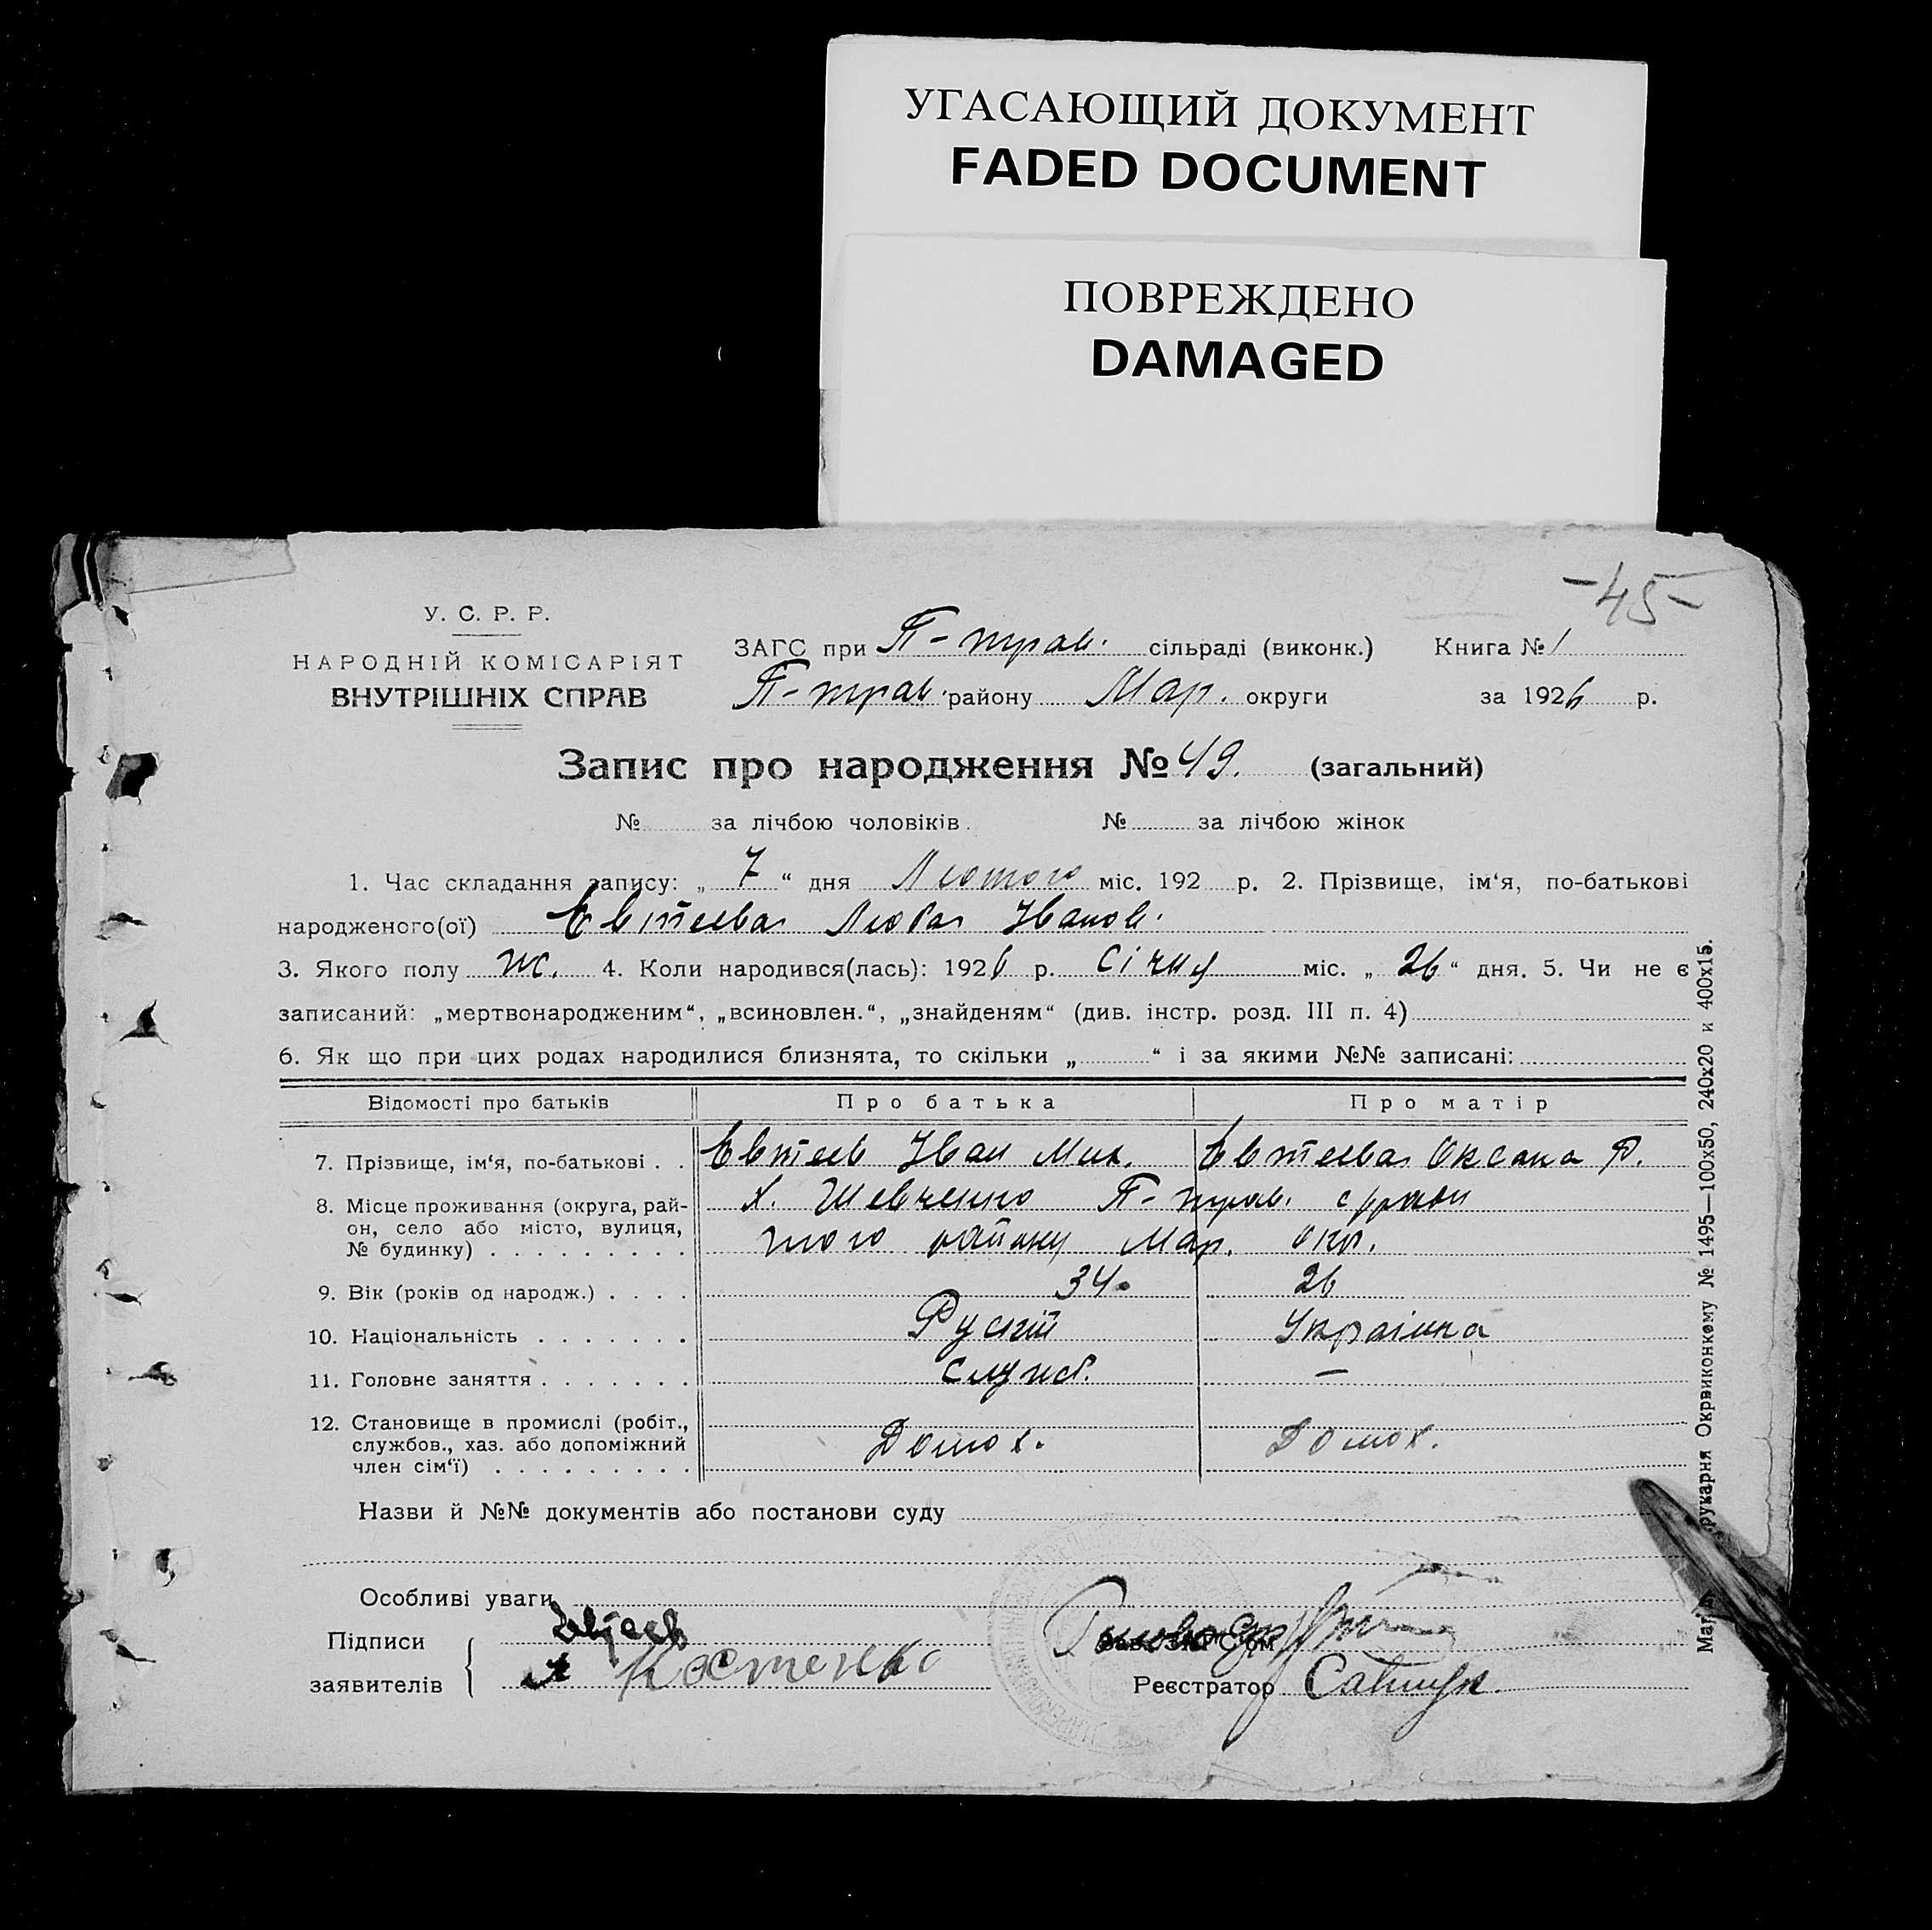 УГАСАЮЩИЙ ДОКУМЕНТ
FADED DOCUMENT
ПОВРЕЖДЕНО
DAMAGED
-45-
У. С. Р. Р.
НАРОДНІЙ КОМІСАРІЯТ
ВНУТРІШНІХ СПРАВ
ЗАГС при П-трав. сільраді (виконк.) Книга № 1
П-трав. району Мар. округи за 1926 р.
Запис про народження № 49. (загальний)
№ за лічбою чоловіків. № за лічбою жінок
1. Час складання запису: „ 7 “ дня Лютого міс. 192 р. 2. Прізвище, ім‘я, по-батькові
народженого(ої) Евтеева Люба Іванов.
3. Якого полу ж. 4. Коли народився(лась): 1926 р. Січня міс. „ 26 “ дня. 5. Чи не є
записаний: „мертвонародженим“, „всиновлен.“, „знайденям“ (див. інстр. розд. III п. 4)
6. Як що при цих родах народилися близнята, то скільки „ “ і за якими №№ записані:
Відомості про батьків Про батька Про матір
7. Прізвище, ім‘я, по-батькові . . Евтеев Іван Мих. Евтеева Оксана
8. Місце проживання (округа, рай-
он, село або місто, вулиця,
№ будинку) . . . . . . . . .
х. Шевченко П-трав. с/ради
того району Мар. окр.
9. Вік (років од народж.) . . . . 34. 26
10. Національність . . . . . . . Руский Українка
11. Головне заняття . . . . . . . служб. —
12. Становище в промислі (робіт.,
службов., хаз. або допоміжний
член сім‘ї) . . . . . . . . .
Домох. Домох.
Назви й №№ документів або постанови суду
Особливі уваги
Підписи
заявителів
Евтеев
Костенко
Зав. ЗАГС‘ом
Реєстратор Савчук.
рукарня Окрвиконкому № 1495—100х50, 240х20 и 400х15.